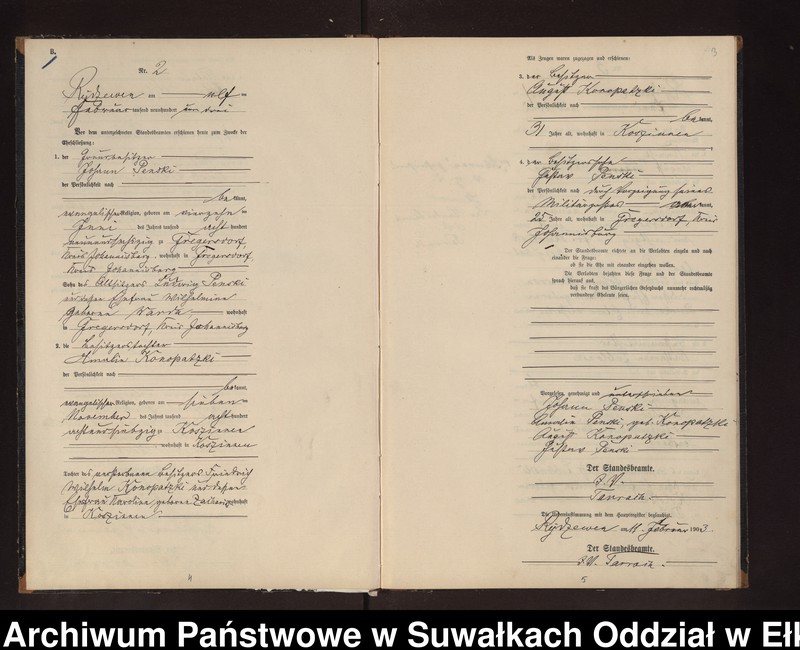 B.
Nr. 2
Rydzewen am elf ten
Februar tausend neunhundert und drei
Vor dem unterzeichneten Standesbeamten erschienen heute zum Zwecke der
Eheschließung:
1. der
Johann Penski
der Persönlichkeit nach
be kannt,
evangelischer Religion, geboren am vierzehn ten
Juni des Jahres tausend acht hundert
neunundsechzig in Gregersdorf,
Kreis Johannisburg, wohnhaft in Gregersdorf,
Kreis Johannisburg
Sohn des Altsitzers Ludwig Penski
und dessen Ehefrau Wilhelmine
geborene Warda wohnhaft
in Gregersdorf, Kreis Johannisburg
2. die Besitzertochter
Amalie Konopatzki
der Persönlichkeit nach
be kannt,
evangelischer Religion, geboren am sieben ten
November des Jahres tausend acht hundert
achtundsiebzig in Koszinnen
, wohnhaft in Koszinnen
Tochter des verstorbenen Besitzers Friedrich
Wilhelm Konopatzki und dessen
Ehefrau Karoline, geborene wohnhaft
in Koszinnen
4
3
Als Zeugen waren zugezogen und erschienen:
3. der Besitzer
August Konopatzki
der Persönlichkeit nach
be kannt,
31 Jahre alt, wohnhaft in Koszinnen
4. der Besitzersohn
Gustav Penski
der Persönlichkeit nach durch Vorzeigung seines
Militärpasses kannt,
25 Jahre alt, wohnhaft in Gregersdorf, Kreis
Johannisburg
Der Standesbeamte richtete an die Verlobten einzeln und nach
einander die Frage:
ob sie die Ehe mit einander eingehen wollen.
Die Verlobten bejahten diese Frage und der Standesbeamte
sprach hierauf aus,
daß sie kraft des Bürgerlichen Gesetzbuchs nunmehr rechtmäßig
verbundene Eheleute seien.
Vorgelesen, genehmigt und unterschrieben
Johann Penski
Amalie Penski, geb. Konopatzki
August Konopatzki
Gustav Penski
Der Standesbeamte.
I. V.
Die Übereinstimmung mit dem Hauptregister beglaubigt.
Rydzewen am 11. Februar 1903.
Der Standesbeamte.
I. V.
5
Archiwum Państwowe w Suwałkach Oddział w Ełk